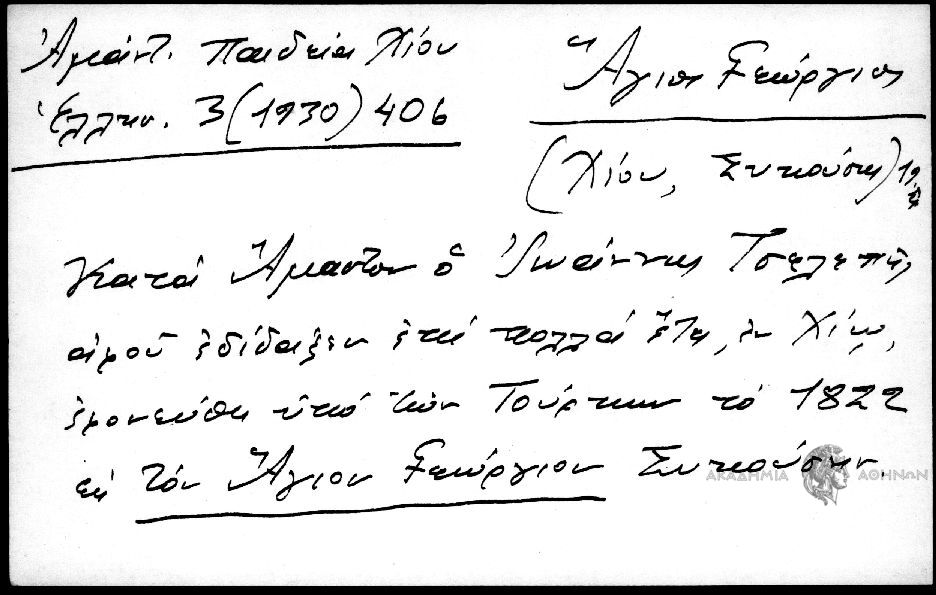 Ἀμάντ. Παιδεία Χίου
Ἑλλην. 3 (1930) 406
Ἅγιος Γεώργιος
(Χίου, Συκούσης) 19
Κατά Ἄμαντον ὁ Ἰωάννης Τσελεπῆς
ἀφοῦ ἐδίδαξεν ἐπί πολλά ἔτη, ἐν Χίῳ,
ἐφονεύθη ὑπό τῶν Τούρκων τό 1822
εἰς τόν Ἅγιον Γεώργιον Συκούσην.
ΑΚΑΔΗΜΙΑ ΑΘΗΝΩΝ